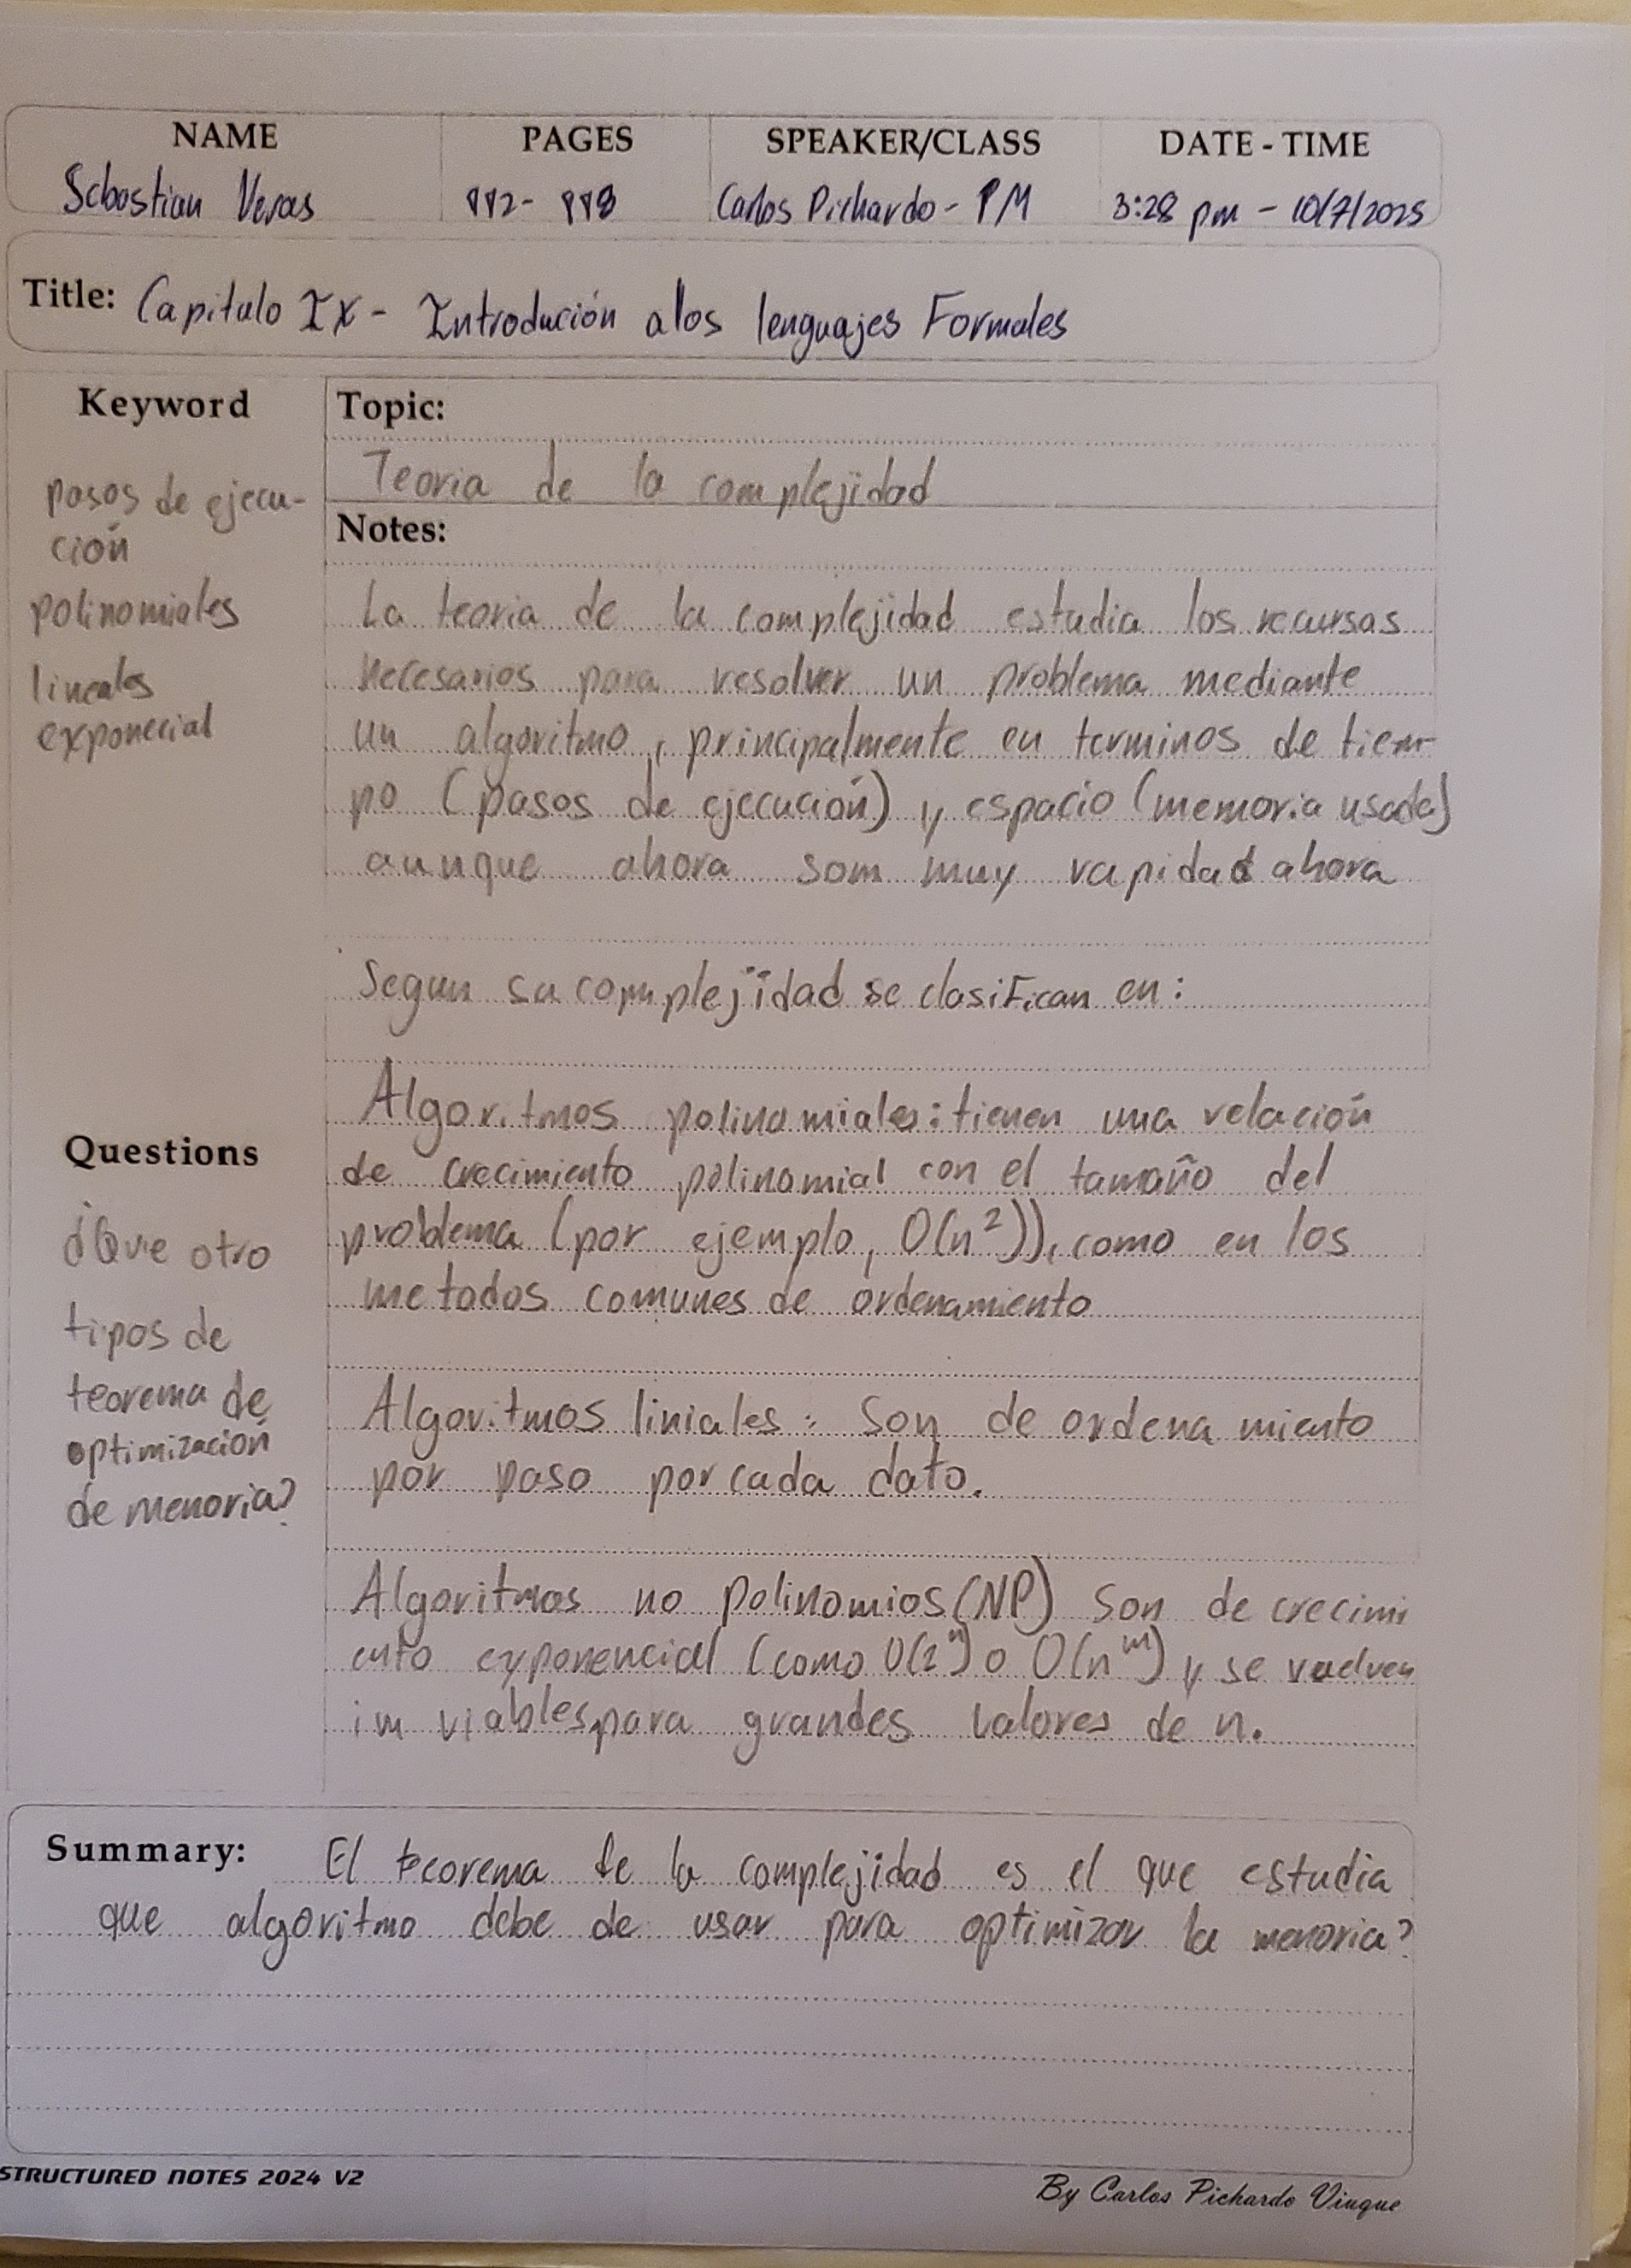 NAME PAGES SPEAKER/CLASS DATE - TIME
Sebastian Veras 112- 118 Carlos Pichardo - PM 3:28 pm - 10/7/2025
Title: Capitulo IX - Introdución alos lenguajes Formales
Keyword
pasos de ejecu-
ción
polinomiales
lineales
exponecial
Topic:
Teoria de la complejidad
Notes:
La teoria de la complejidad estudia los recursos
necesarios para resolver un problema mediante
un algoritmo, principalmente en terminos de tiem-
po (pasos de ejecución) y espacio (memoria usada)
aunque ahora som muy rapidad ahora
Segun su complejidad se clasifican en:
Algoritmos polinomiales: tienen una relación
de crecimiento polinomial con el tamaño del
problema (por ejemplo, O(n²)), como en los
metodos comunes de ordenamiento
Algoritmos liniales: Son de ordena miento
por paso por cada dato.
Algoritmos no polinomios (NP) son de crecimi
ento exponencial (como O(2ⁿ) o O(nᵐ) y se vuelven
im viables para grandes valores de n.
Questions
¿Que otro
tipos de
teorema de
optimización
de menoria?
Summary: El teorema de la complejidad es el que estudia
que algoritmo debe de usar para optimizar la menoria?
STRUCTURED NOTES 2024 V2
By Carlos Pichardo Viuque